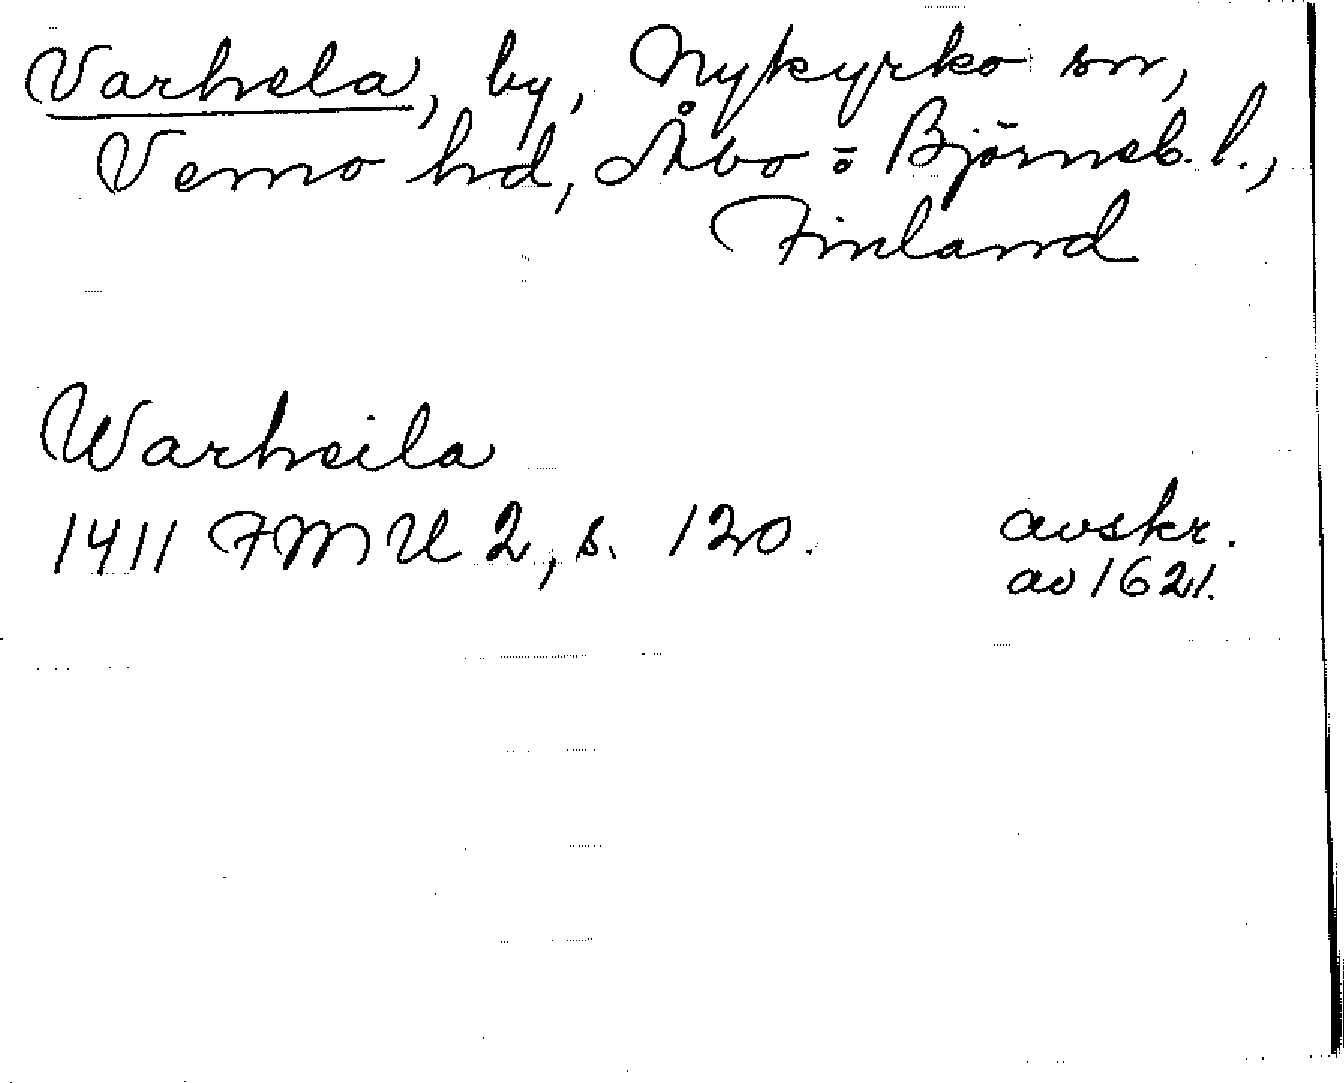 Varhela, by, Nykyrko sn,
Vemo hd, Åbo o Björneb. l.,
Finland
Warheila
1411 FMU 2, s. 120. avskr.
av 1621.